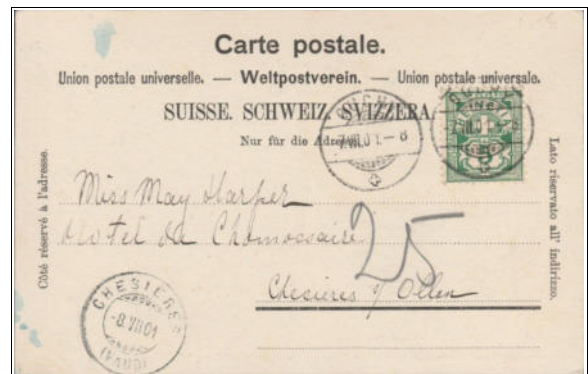 Carte postale.
Union postale universelle. — Weltpostverein. — Unione postale universale.
SUISSE. SCHWEIZ. SVIZZERA.
Nur für die Adresse.
Côté réservé à l'adresse.
Lato riservato all' indirizzo.
7.VII.01.–8
5
Miss May Harper
Hotel du Chamossaire
25
Chesières s/ Ollon
CHESIERES
-8.VII.01
(VAUD)